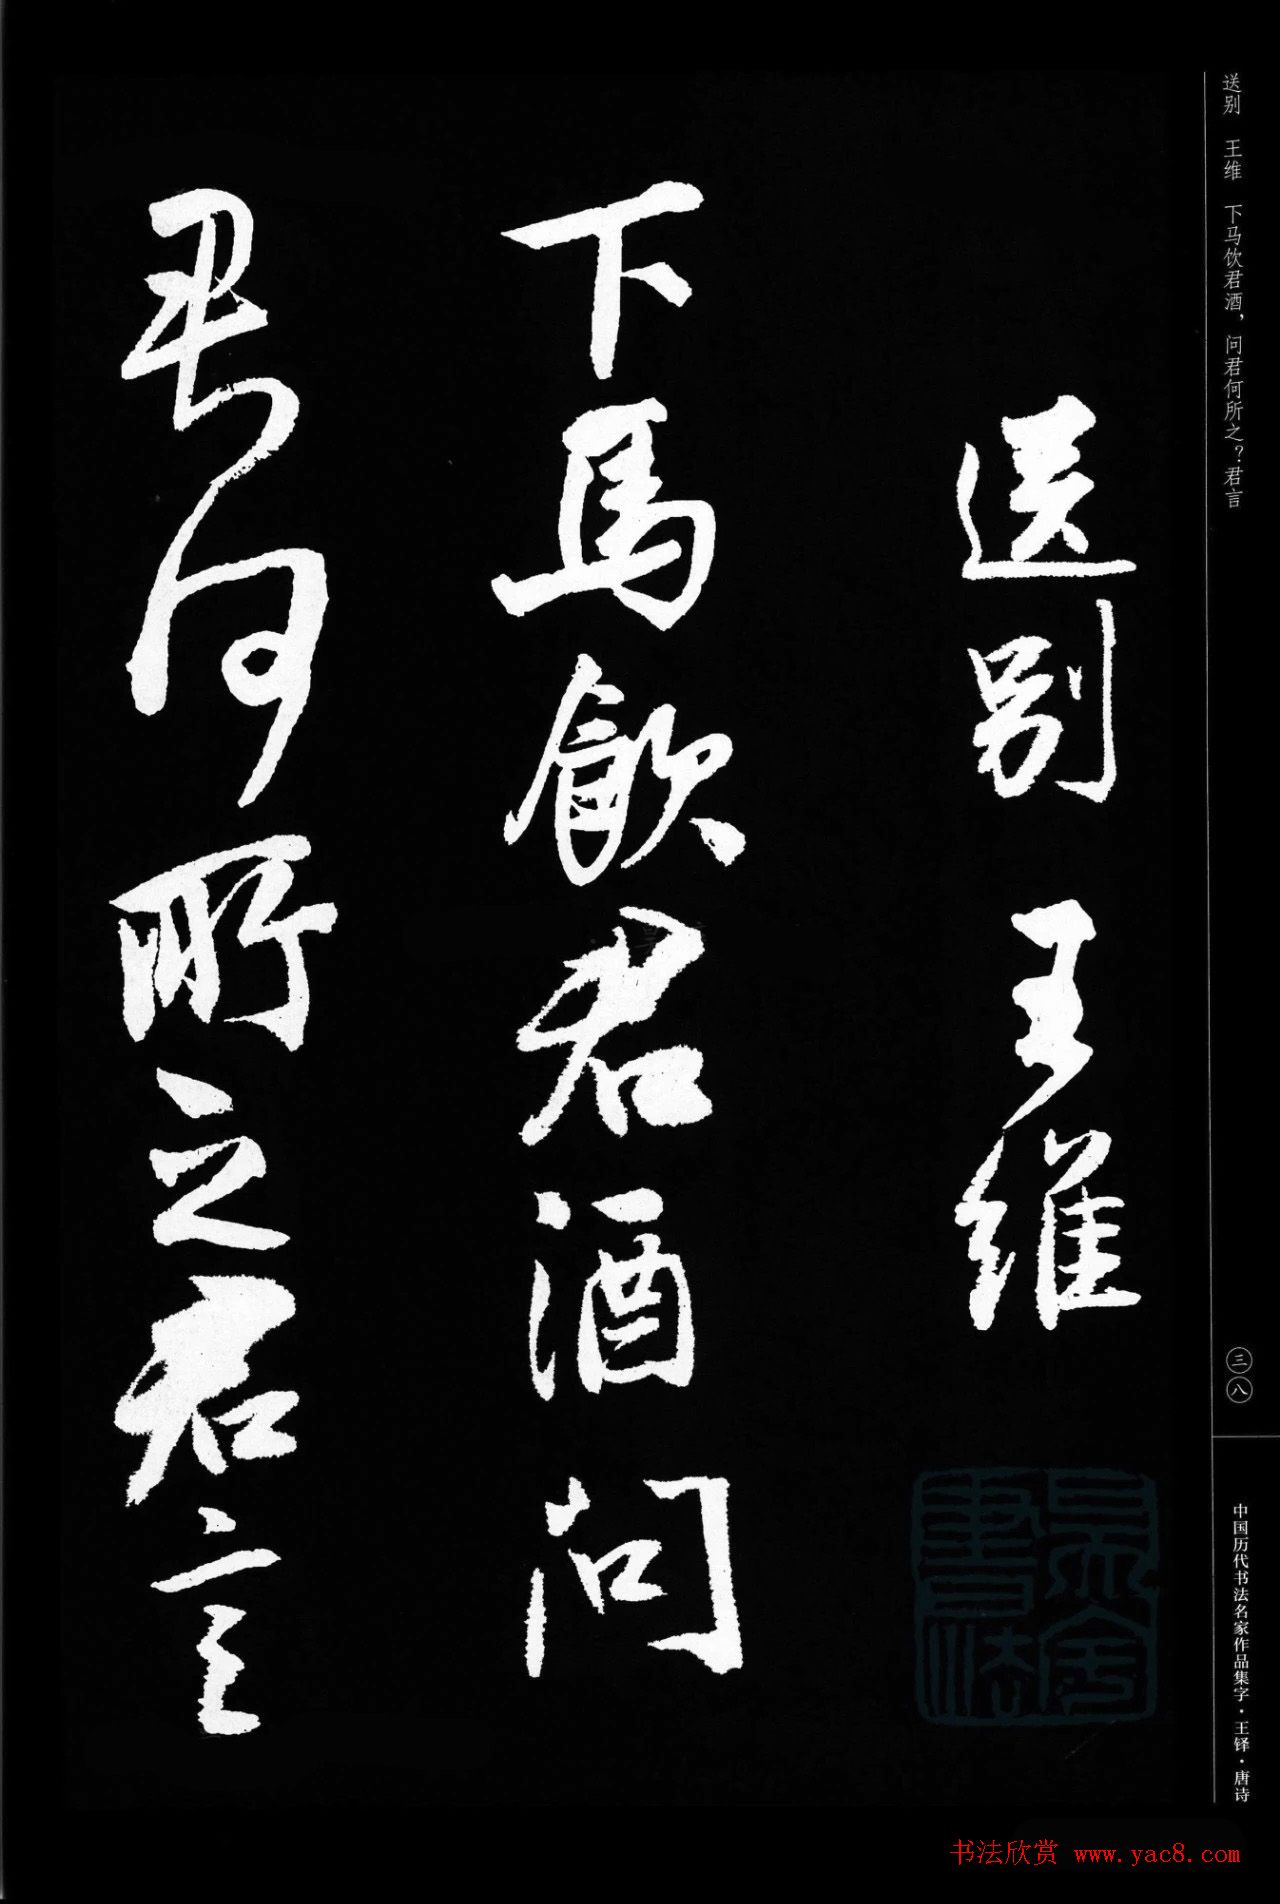 送别 王维 下马饮君酒，问君何所之？君言
送别 王維
下馬飲君酒問
君何所之君言
三八
中国历代书法名家作品集字·王铎·唐诗
书法欣赏 www.yac8.com